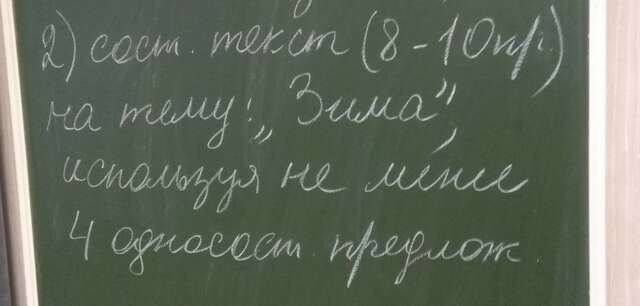 2) сост. текст (8-10пр.)
на тему: „Зима",
используя не менее
4 односост. предлож.